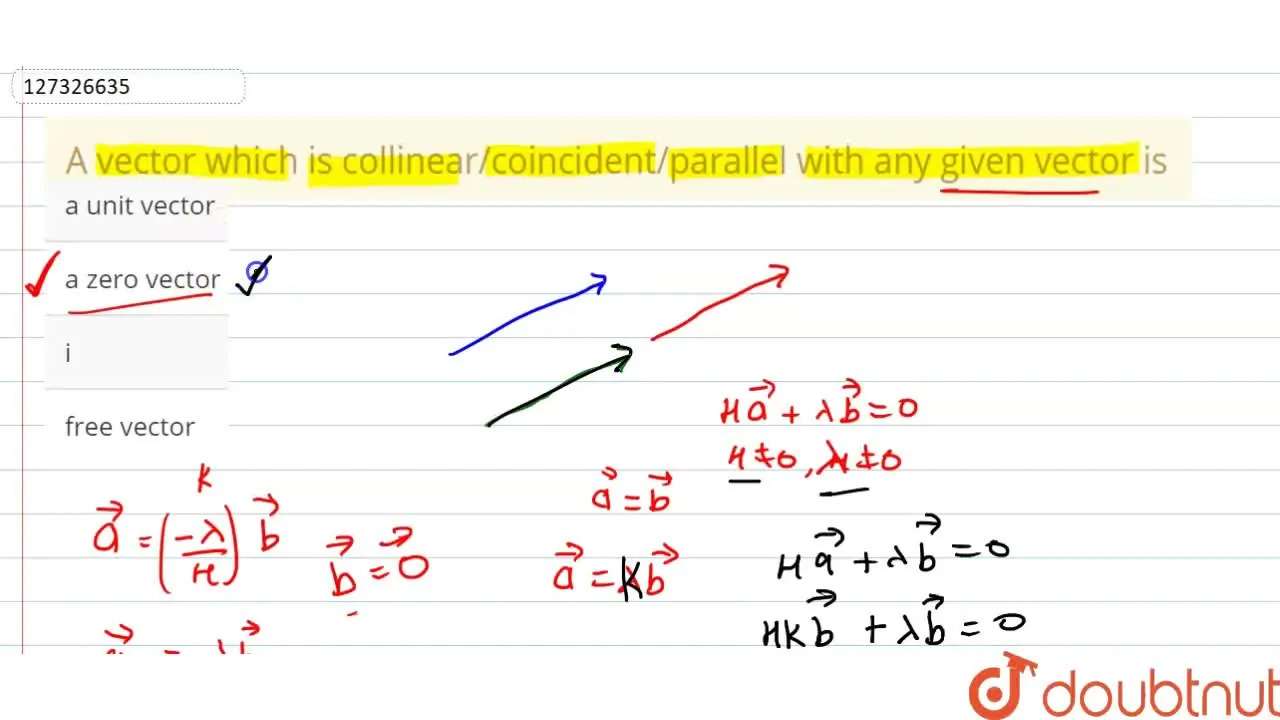 127326635
A vector which is collinear/coincident/parallel with any given vector is
a unit vector
a zero vector
i
free vector
μa⃗ + λb⃗ = 0
μ ≠ 0, λ ≠ 0
K
a⃗ = (-λ/μ) b⃗
b⃗ = 0⃗
a⃗ = b⃗
a⃗ = Kb⃗
μa⃗ + λb⃗ = 0
μKb⃗ + λb⃗ = 0
doubtnut